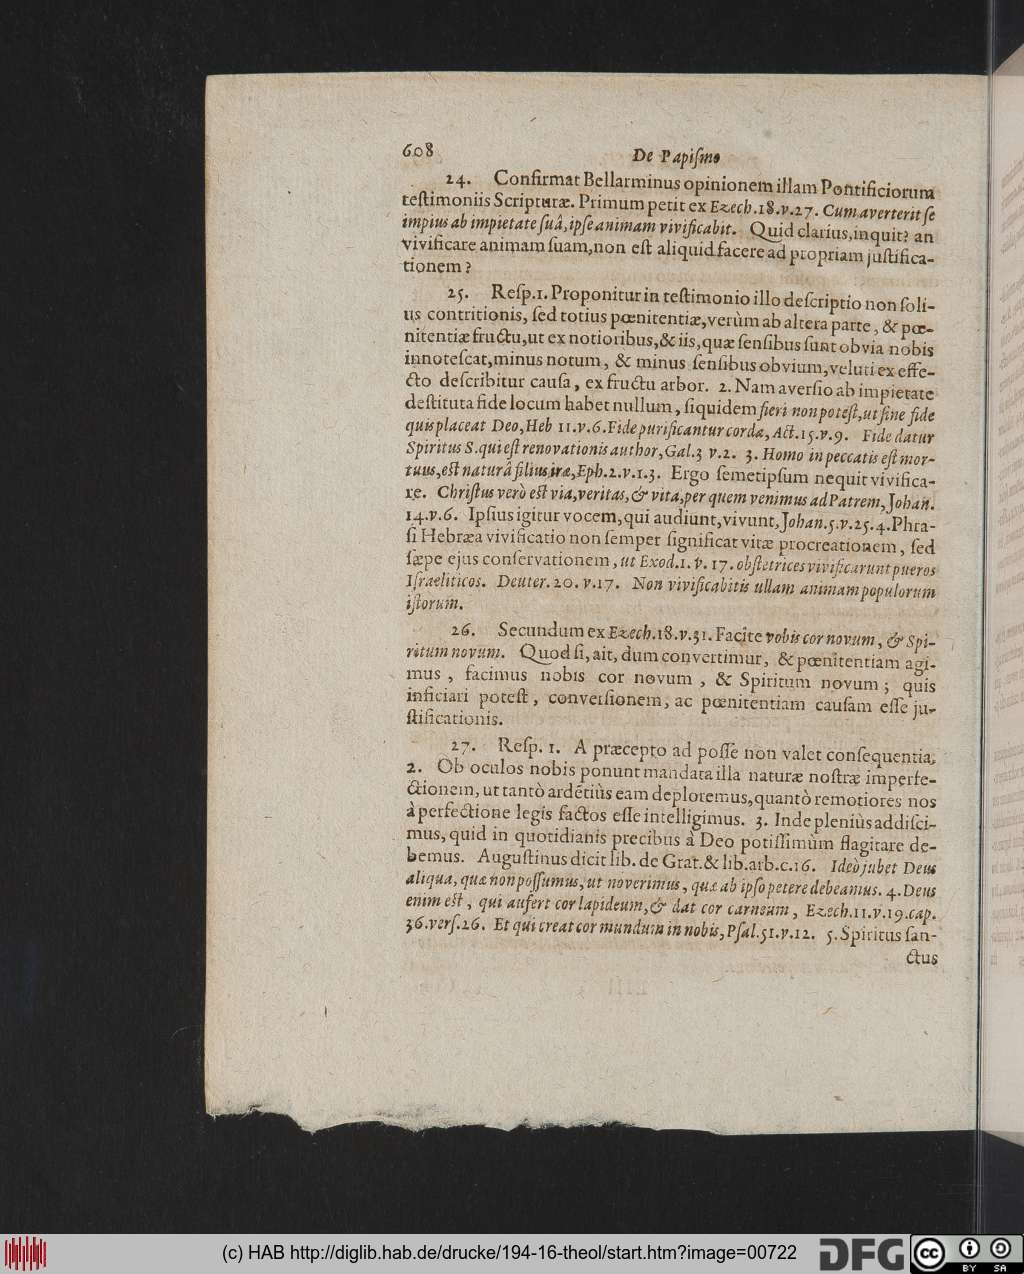 608
De Papiſmo
24. Confirmat Bellarminus opinionem illam Pontificiorum
teſtimoniis Scripturæ. Primum petit ex Ezech.18.v.27. Cum averterit ſe
impius ab impietate ſuâ, ipſe animam vivificabit. Quid clarius, inquit? an
vivificare animam ſuam, non eſt aliquid facere ad propriam juſtifica-
tionem?
25. Reſp.1. Proponitur in teſtimonio illo deſcriptio non ſoli-
us contritionis, ſed totius pœnitentiæ, verùm ab altera parte, & pœ-
nitentiæ fructu, ut ex notioribus, & iis, quæ ſenſibus ſunt obvia nobis
innoteſcat, minus notum, & minus ſenſibus obvium, veluti ex effe-
cto deſcribitur cauſa, ex fructu arbor. 2. Nam averſio ab impietate
deſtituta fide locum habet nullum, ſiquidem fieri non poteſt, ut ſine fide
quis placeat Deo, Heb 11.v.6. Fide purificantur corda, Act.15.v.9. Fide datur
Spiritus S. qui eſt renovationis author, Gal.3 v.2. 3. Homo in peccatis eſt mor-
tuus, eſt naturâ filius iræ, Eph.2.v.1.3. Ergo ſemetipſum nequit vivifica-
re. Chriſtus verò eſt via, veritas, & vita, per quem venimus ad Patrem, Johan.
14.v.6. Ipſius igitur vocem, qui audiunt, vivunt, Johan.5.v.25. 4. Phra-
ſi Hebræa vivificatio non ſemper ſignificat vitæ procreationem, ſed
ſæpe ejus conſervationem, ut Exod.1.v.17. obſtetrices vivificarunt pueros
Iſraeliticos. Deuter.20.v.17. Non vivificabitis ullam animam populorum
iſtorum.
26. Secundum ex Ezech.18.v.31. Facite vobis cor novum, & Spi-
ritum novum. Quod ſi, ait, dum convertimur, & pœnitentiam agi-
mus, facimus nobis cor novum, & Spiritum novum; quis
inficiari poteſt, converſionem, ac pœnitentiam cauſam eſſe ju-
ſtificationis.
27. Reſp. 1. A præcepto ad poſſe non valet conſequentia,
2. Ob oculos nobis ponunt mandata illa naturæ noſtræ imperfe-
ctionem, ut tantò ardẽtiùs eam deploremus, quantò remotiores nos
à perfectione legis factos eſſe intelligimus. 3. Inde pleniùs addiſci-
mus, quid in quotidianis precibus à Deo potiſſimùm flagitare de-
bemus. Auguſtinus dicit lib. de Grat. & lib. arb.c.16. Ideò jubet Deus
aliqua, quæ non poſſumus, ut noverimus, quæ ab ipſo petere debeamus. 4. Deus
enim eſt, qui aufert cor lapideum, & dat cor carneum, Ezech.11.v.19. cap.
36.verſ.26. Et qui creat cor mundum in nobis, Pſal.51.v.12. 5. Spiritus ſan-
ctus
(c) HAB http://diglib.hab.de/drucke/194-16-theol/start.htm?image=00722
DFG
cc BY SA